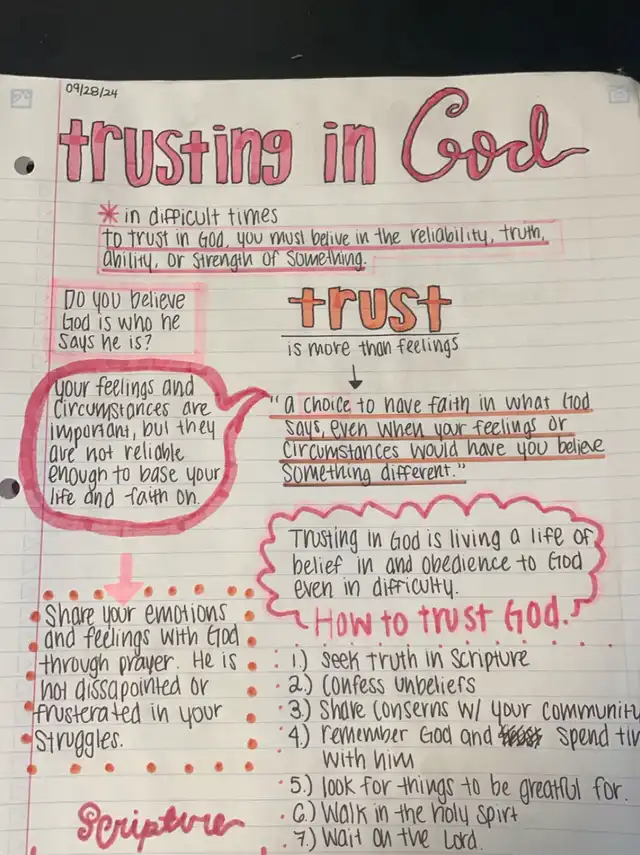 09/28/24
trusting in God
* in difficult times
to trust in God, you must belive in the reliability, truth,
ability, or strength of something.
Do you believe
God is who he
says he is?
trust
is more than feelings
your feelings and
circumstances are
important, but they
are not reliable
enough to base your
life and faith on.
"a choice to have faith in what God
says, even when your feelings or
circumstances would have you believe
something different."
Trusting in God is living a life of
belief in and obedience to God
even in difficulty.
Share your emotions
and feelings with God
through prayer. He is
not dissapointed or
frusterated in your
struggles.
How to trust God.
1.) Seek truth in Scripture
2.) Confess unbeliefs
3.) Share concerns w/ your communit
4.) remember God and spend tir
with him
5.) look for things to be greatful for.
6.) Walk in the holy spirt
7.) Wait on the Lord.
Scripture